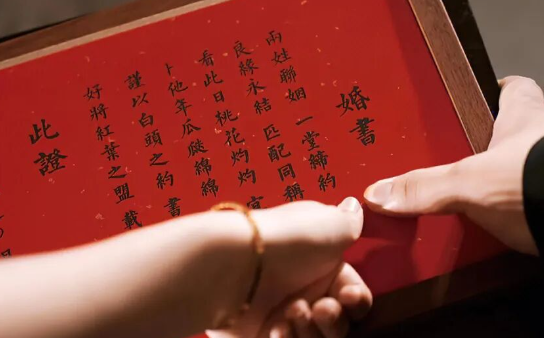 婚書
兩姓聯姻 一堂締約
良緣永結 匹配同稱
看此日桃花灼灼
卜他年瓜瓞綿綿
謹以白頭之約 書
好將紅葉之盟 載
此證